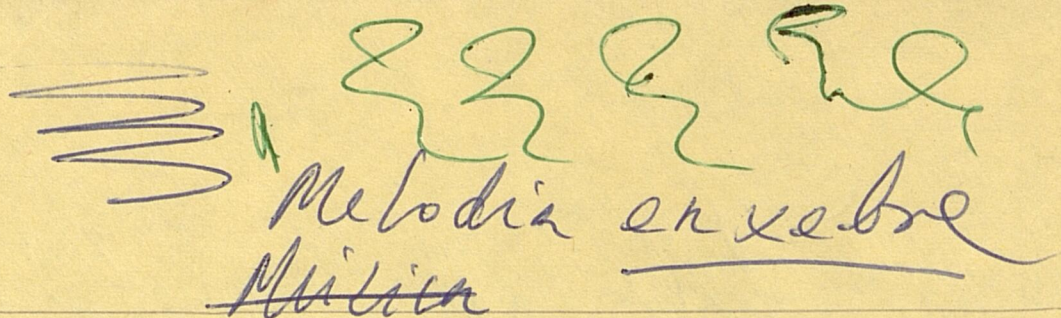 Melodia enxebre
Música